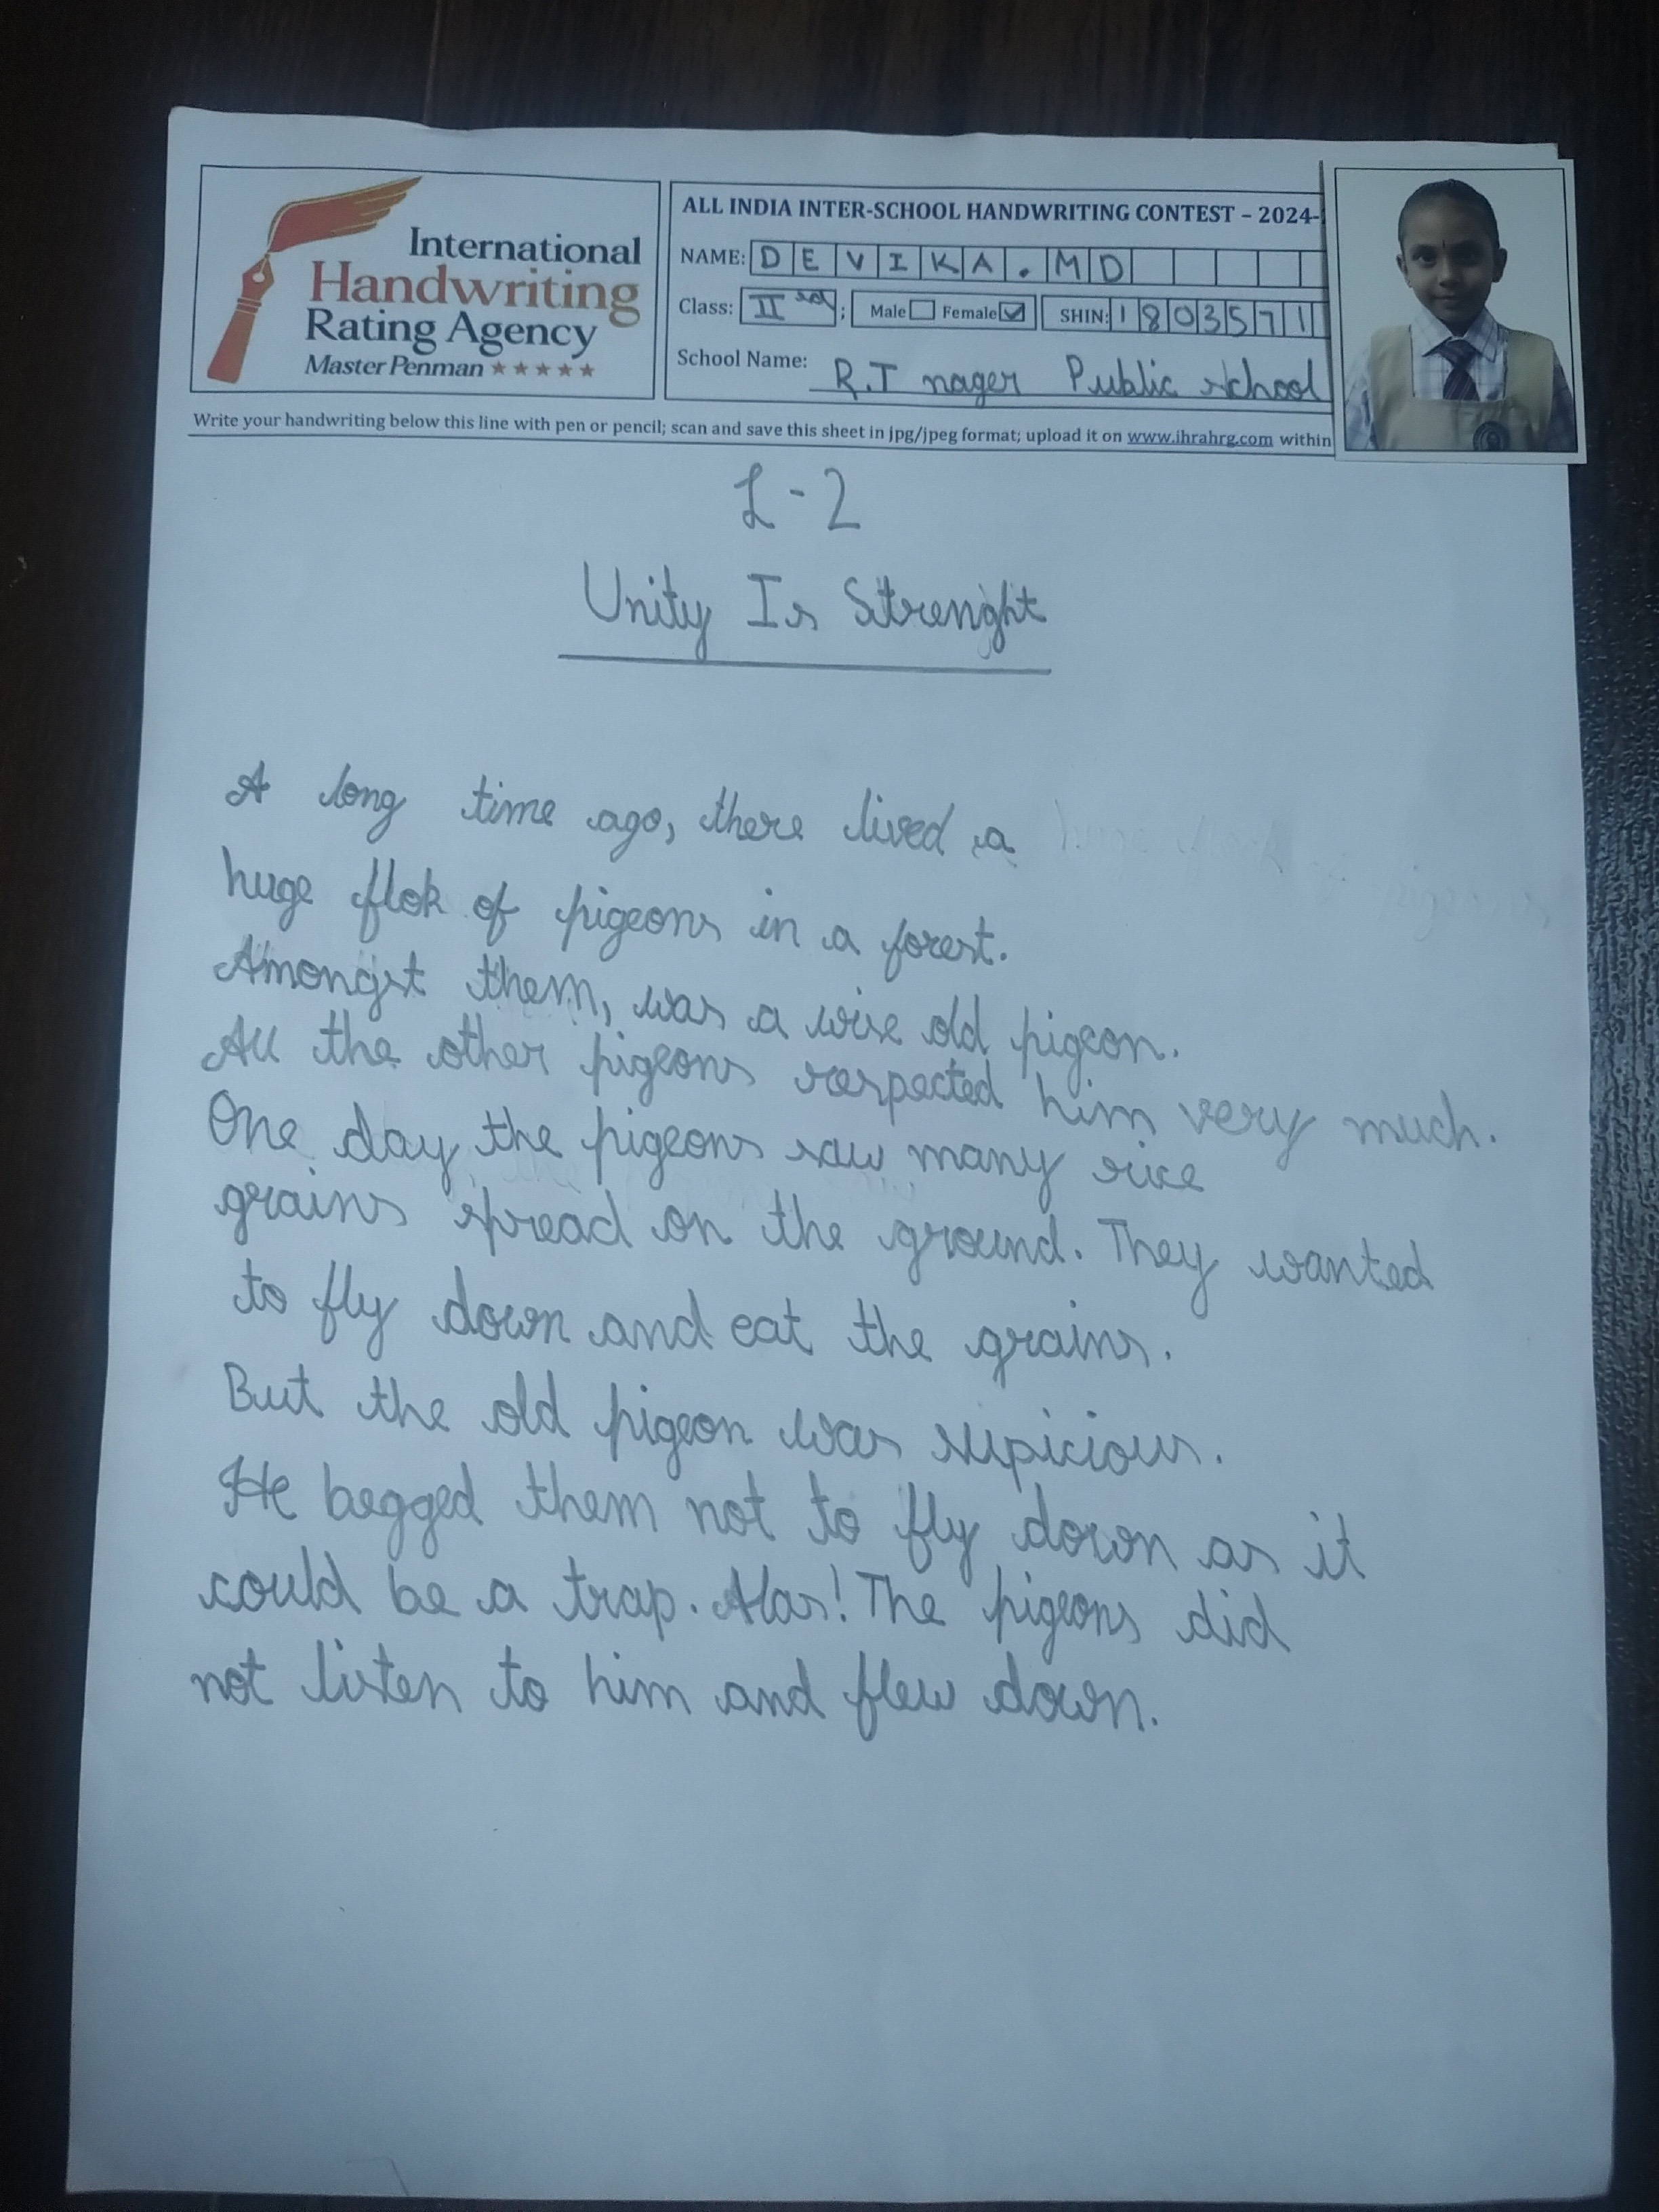 International
Handwriting
Rating Agency
Master Penman ★★★★★
ALL INDIA INTER-SCHOOL HANDWRITING CONTEST – 2024-
NAME: DEVIKA.MD
Class: II nd; Male Female ✓ SHIN: 1803571
School Name: R.T nager Public school
Write your handwriting below this line with pen or pencil; scan and save this sheet in jpg/jpeg format; upload it on www.ihrahrg.com within
L-2
Unity Is Strenght
A long time ago, there lived a
huge flok of pigeons in a forest.
Amongst them, was a wise old pigeon.
All the other pigeons respected him very much.
One day the pigeons saw many rice
grains spread on the ground. They wanted
to fly down and eat the grains.
But the old pigeon was supicious.
He begged them not to fly down as it
could be a trap. Alas! The pigeons did
not listen to him and flew down.